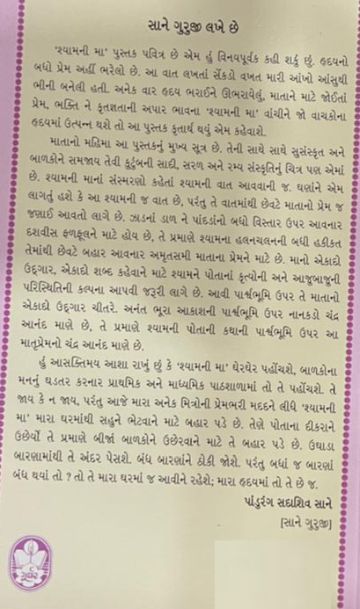 સાને ગુરુજી લખે છે
'શ્યામની મા' પુસ્તક પવિત્ર છે એમ હું વિનયપૂર્વક કહી શકું છું. હૃદયનો
બધો પ્રેમ અહીં ભરેલો છે. આ વાત લખતાં સેંકડો વખત મારી આંખો આંસુથી
ભીની બનેલી હતી. અનેક વાર હૃદય ભરાઈને ઊભરાયેલું, માતાને માટે જોઈતાં
પ્રેમ, ભક્તિ ને કૃતજ્ઞતાની અપાર ભાવના 'શ્યામની મા' વાંચીને જો વાચકોના
હૃદયમાં ઉત્પન્ન થશે તો આ પુસ્તક કૃતાર્થ થયું એમ કહેવાશે.
માતાનો મહિમા આ પુસ્તકનું મુખ્ય સૂત્ર છે. તેની સાથે સાથે સુસંસ્કૃત અને
બાળકોને સમજાય તેવી કુટુંબની સાદી, સરળ અને રમ્ય સંસ્કૃતિનું ચિત્ર પણ એમાં
છે. શ્યામની માનાં સંસ્મરણો કહેતાં શ્યામની વાત આવવાની જ. ઘણાંને એમ
લાગતું હશે કે આ શ્યામની જ વાત છે, પરંતુ તે વાતમાંથી છેવટે માતાનો પ્રેમ જ
જણાઈ આવતો લાગે છે. ઝાડનાં ડાળ ને પાંદડાંનો બધો વિસ્તાર ઉપર આવનાર
દશવીસ ફળફૂલને માટે હોય છે, તે પ્રમાણે શ્યામના હલનચલનની બધી હકીકત
તેમાંથી છેવટે બહાર આવનાર અમૃતસમી માતાના પ્રેમને માટે છે. માનો એકાદો
ઉદ્ગાર, એકાદો શબ્દ કહેવાને માટે શ્યામને પોતાનાં કૃત્યોની અને આજુબાજુની
પરિસ્થિતિની કલ્પના આપવી જરૂરી લાગે છે. આવી પાર્શ્વભૂમિ ઉપર તે માતાનો
એકાદો ઉદ્ગાર ચીતરે. અનંત ભૂરા આકાશની પાર્શ્વભૂમિ ઉપર નાનકડો ચંદ્ર
આનંદ માણે છે, તે પ્રમાણે શ્યામની પોતાની કથાની પાર્શ્વભૂમિ ઉપર આ
માતૃપ્રેમનો ચંદ્ર આનંદ માણે છે.
હું આસક્તિમય આશા રાખું છું કે 'શ્યામની મા' ઘેરઘેર પહોંચશે. બાળકોના
મનનું ઘડતર કરનાર પ્રાથમિક અને માધ્યમિક પાઠશાળામાં તો તે પહોંચશે. તે
જાય કે ન જાય, પરંતુ આજે મારા અનેક મિત્રોની પ્રેમભરી મદદને લીધે 'શ્યામની
મા' મારા ઘરમાંથી સહુને ભેટવાને માટે બહાર પડે છે. તેણે પોતાના દીકરાને
ઉછેર્યો તે પ્રમાણે બીજાં બાળકોને ઉછેરવાને માટે તે બહાર પડે છે. ઉઘાડા
બારણામાંથી તે અંદર પેસશે. બંધ બારણાંને ઠોકી જોશે. પરંતુ બધાં જ બારણાં
બંધ થયાં તો ? તો તે મારા ઘરમાં જ આવીને રહેશે; મારા હૃદયમાં તો તે છે જ.
પાંડુરંગ સદાશિવ સાને
[સાને ગુરુજી]